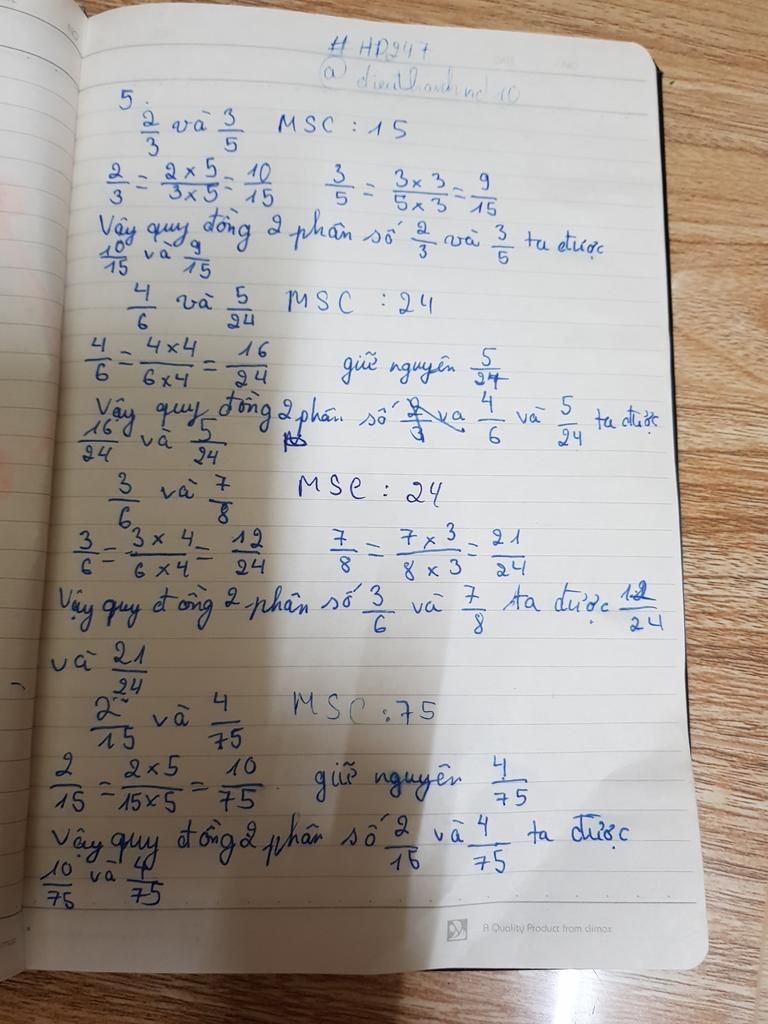 # HD247
@ dieuthanhnd 10
5.
2/3 và 3/5 MSC : 15
2/3 = 2 x 5/3 x 5 = 10/15 3/5 = 3 x 3/5 x 3 = 9/15
Vậy quy đồng 2 phân số 2/3 và 3/5 ta được
10/15 và 9/15
4/6 và 5/24 MSC : 24
4/6 = 4 x 4/6 x 4 = 16/24 giữ nguyên 5/24
Vậy quy đồng 2 phân số 4/6 và 5/24 ta được
16/24 và 5/24
3/6 và 7/8 MSC : 24
3/6 = 3 x 4/6 x 4 = 12/24 7/8 = 7 x 3/8 x 3 = 21/24
Vậy quy đồng 2 phân số 3/6 và 7/8 ta được 12/24
và 21/24
2/15 và 4/75 MSC : 75
2/15 = 2 x 5/15 x 5 = 10/75 giữ nguyên 4/75
Vậy quy đồng 2 phân số 2/15 và 4/75 ta được
10/75 và 4/75
A Quality Product from dimax